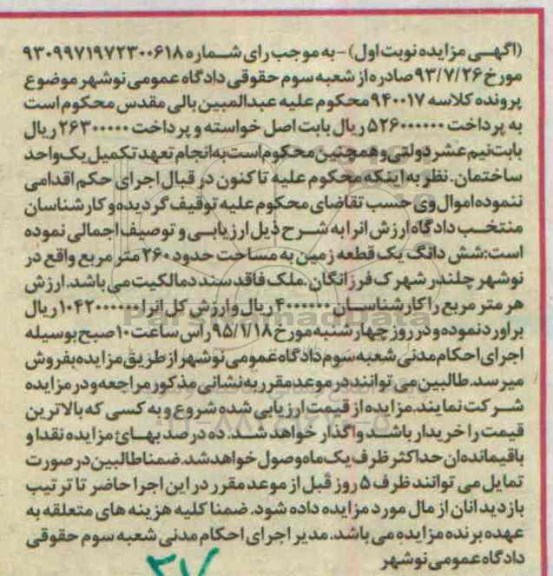 (اگهـی مزایده نوبت اول) - به موجب رای شـماره ۹۳۰۹۹۷۱۹۷۲۳۰۰۶۱۸
مورخ ۹۳/۷/۲۶ صادره از شعبه سوم حقوقی دادگاه عمومی نوشهر موضوع
پرونده کلاسه ۹۴۰۰۱۷ محکوم علیه عبدالمبین بالی مقدس محکوم است
به پرداخت ۵۲۶۰۰۰۰۰۰ ریال بابت اصل خواسته و پرداخت ۲۶۳۰۰۰۰۰ ریال
بابت نیم عشر دولتی وهمچنین محکوم است به انجام تعهد تکمیل یک واحد
ساختمان. نظر به اینکه محکوم علیه تا کنون در قبال اجرای حکم اقدامی
ننموده اموال وی حسب تقاضای محکوم علیه توقیف گردیده و کارشناسان
منتخـب دادگاه ارزش انرا به شـرح ذیل ارزیابـی و توصیف اجمالی نموده
است: شش دانگ یک قطعه زمین به مساحت حدود ۲۶۰ متر مربع واقع در
نوشهر چلندر شهرک فرزانگان. ملک فاقد سند مالکیت می باشد. ارزش
هر متر مربع را کارشناسـان ۴۰۰۰۰۰۰ ریال وارزش کل انرا ۱۰۴۲۰۰۰۰۰۰ ریال
براورد نموده و در روز چهارشنبه مورخ ۹۵/۱/۱۸ راس ساعت ۱۰ صبح بوسیله
اجرای احکام مدنی شعبه سوم دادگاه عمومی نوشهر از طریق مزایده بفروش
میرسد. طالبین می توانند در موعد مقرر به نشانی مذکور مراجعه و در مزایده
شـرکت نمایند. مزایده از قیمت ارزیابی شده شروع و به کسی که بالاترین
قیمت را خریدار باشـد واگذار خواهد شـد. ده درصد بهـای مزایده نقدا و
باقیمانده ان حداکثر ظرف یک ماه وصول خواهد شد. ضمنا طالبین در صورت
تمایل می توانند ظرف ۵ روز قبل از موعد مقرر در این اجرا حاضر تا ترتیب
بازدید انان از مال مورد مزایده داده شود. ضمنا کلیه هزینه های متعلقه به
عهده برنده مزایده می باشد. مدیر اجرای احکام مدنی شعبه سوم حقوقی
دادگاه عمومی نوشهر
۲۷